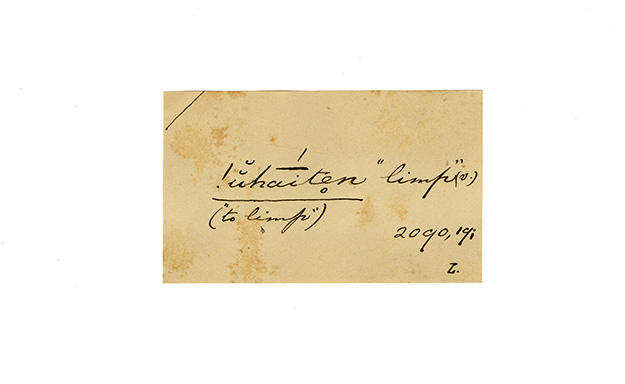 !ŭhaíten̥ "limp" (v.)
("to limp")
2090, 19;
L.